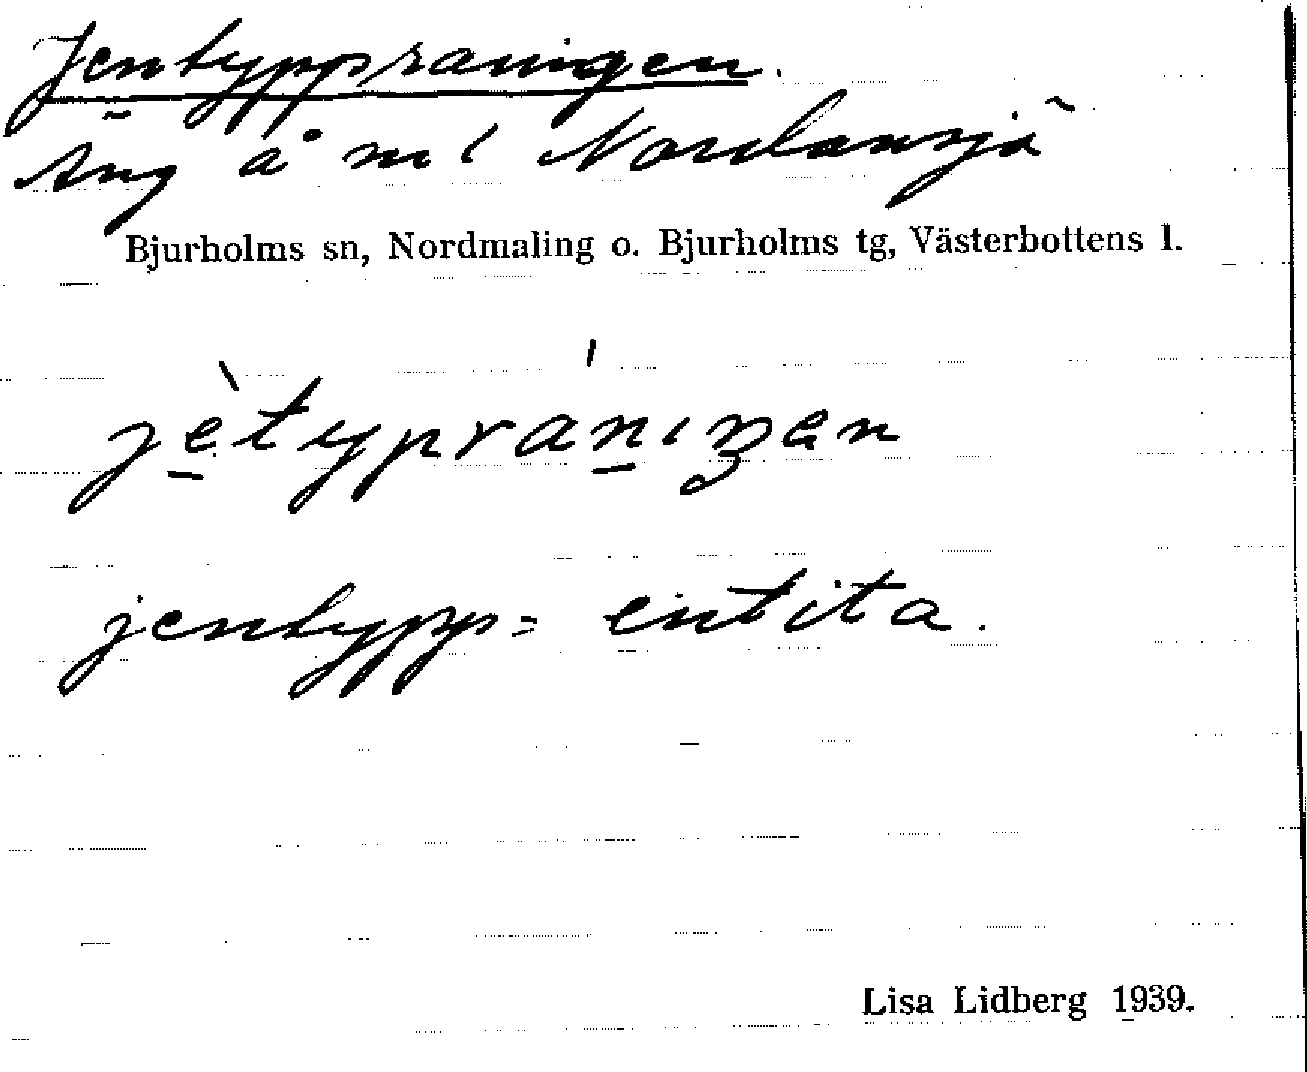 Jentyppraningen.
Äng å m 1 Nordansjö
Bjurholms sn, Nordmaling o. Bjurholms tg, Västerbottens l.
jentypp = entita.
Lisa Lidberg 1939.